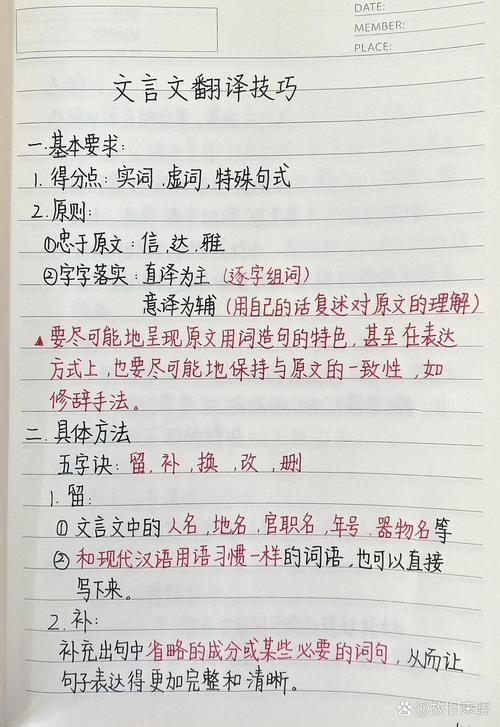 DATE:
MEMBER:
PLACE:
文言文翻译技巧
一.基本要求:
1. 得分点: 实词,虚词,特殊句式
2. 原则:
①忠于原文: 信,达,雅
②字字落实: 直译为主 (逐字组词)
意译为辅 (用自己的话复述对原文的理解)
▲要尽可能地呈现原文用词造句的特色,甚至在表达
方式上,也要尽可能地保持与原文的一致性,如
修辞手法。
二.具体方法
五字诀: 留,补,换,改,删
1. 留:
① 文言文中的人名,地名,官职名,年号,器物名等
② 和现代汉语用语习惯一样的词语,也可以直接
写下来。
2. 补:
补充出句中省略的成分或某些必要的词句,从而让
句子表达得更加完整和清晰。